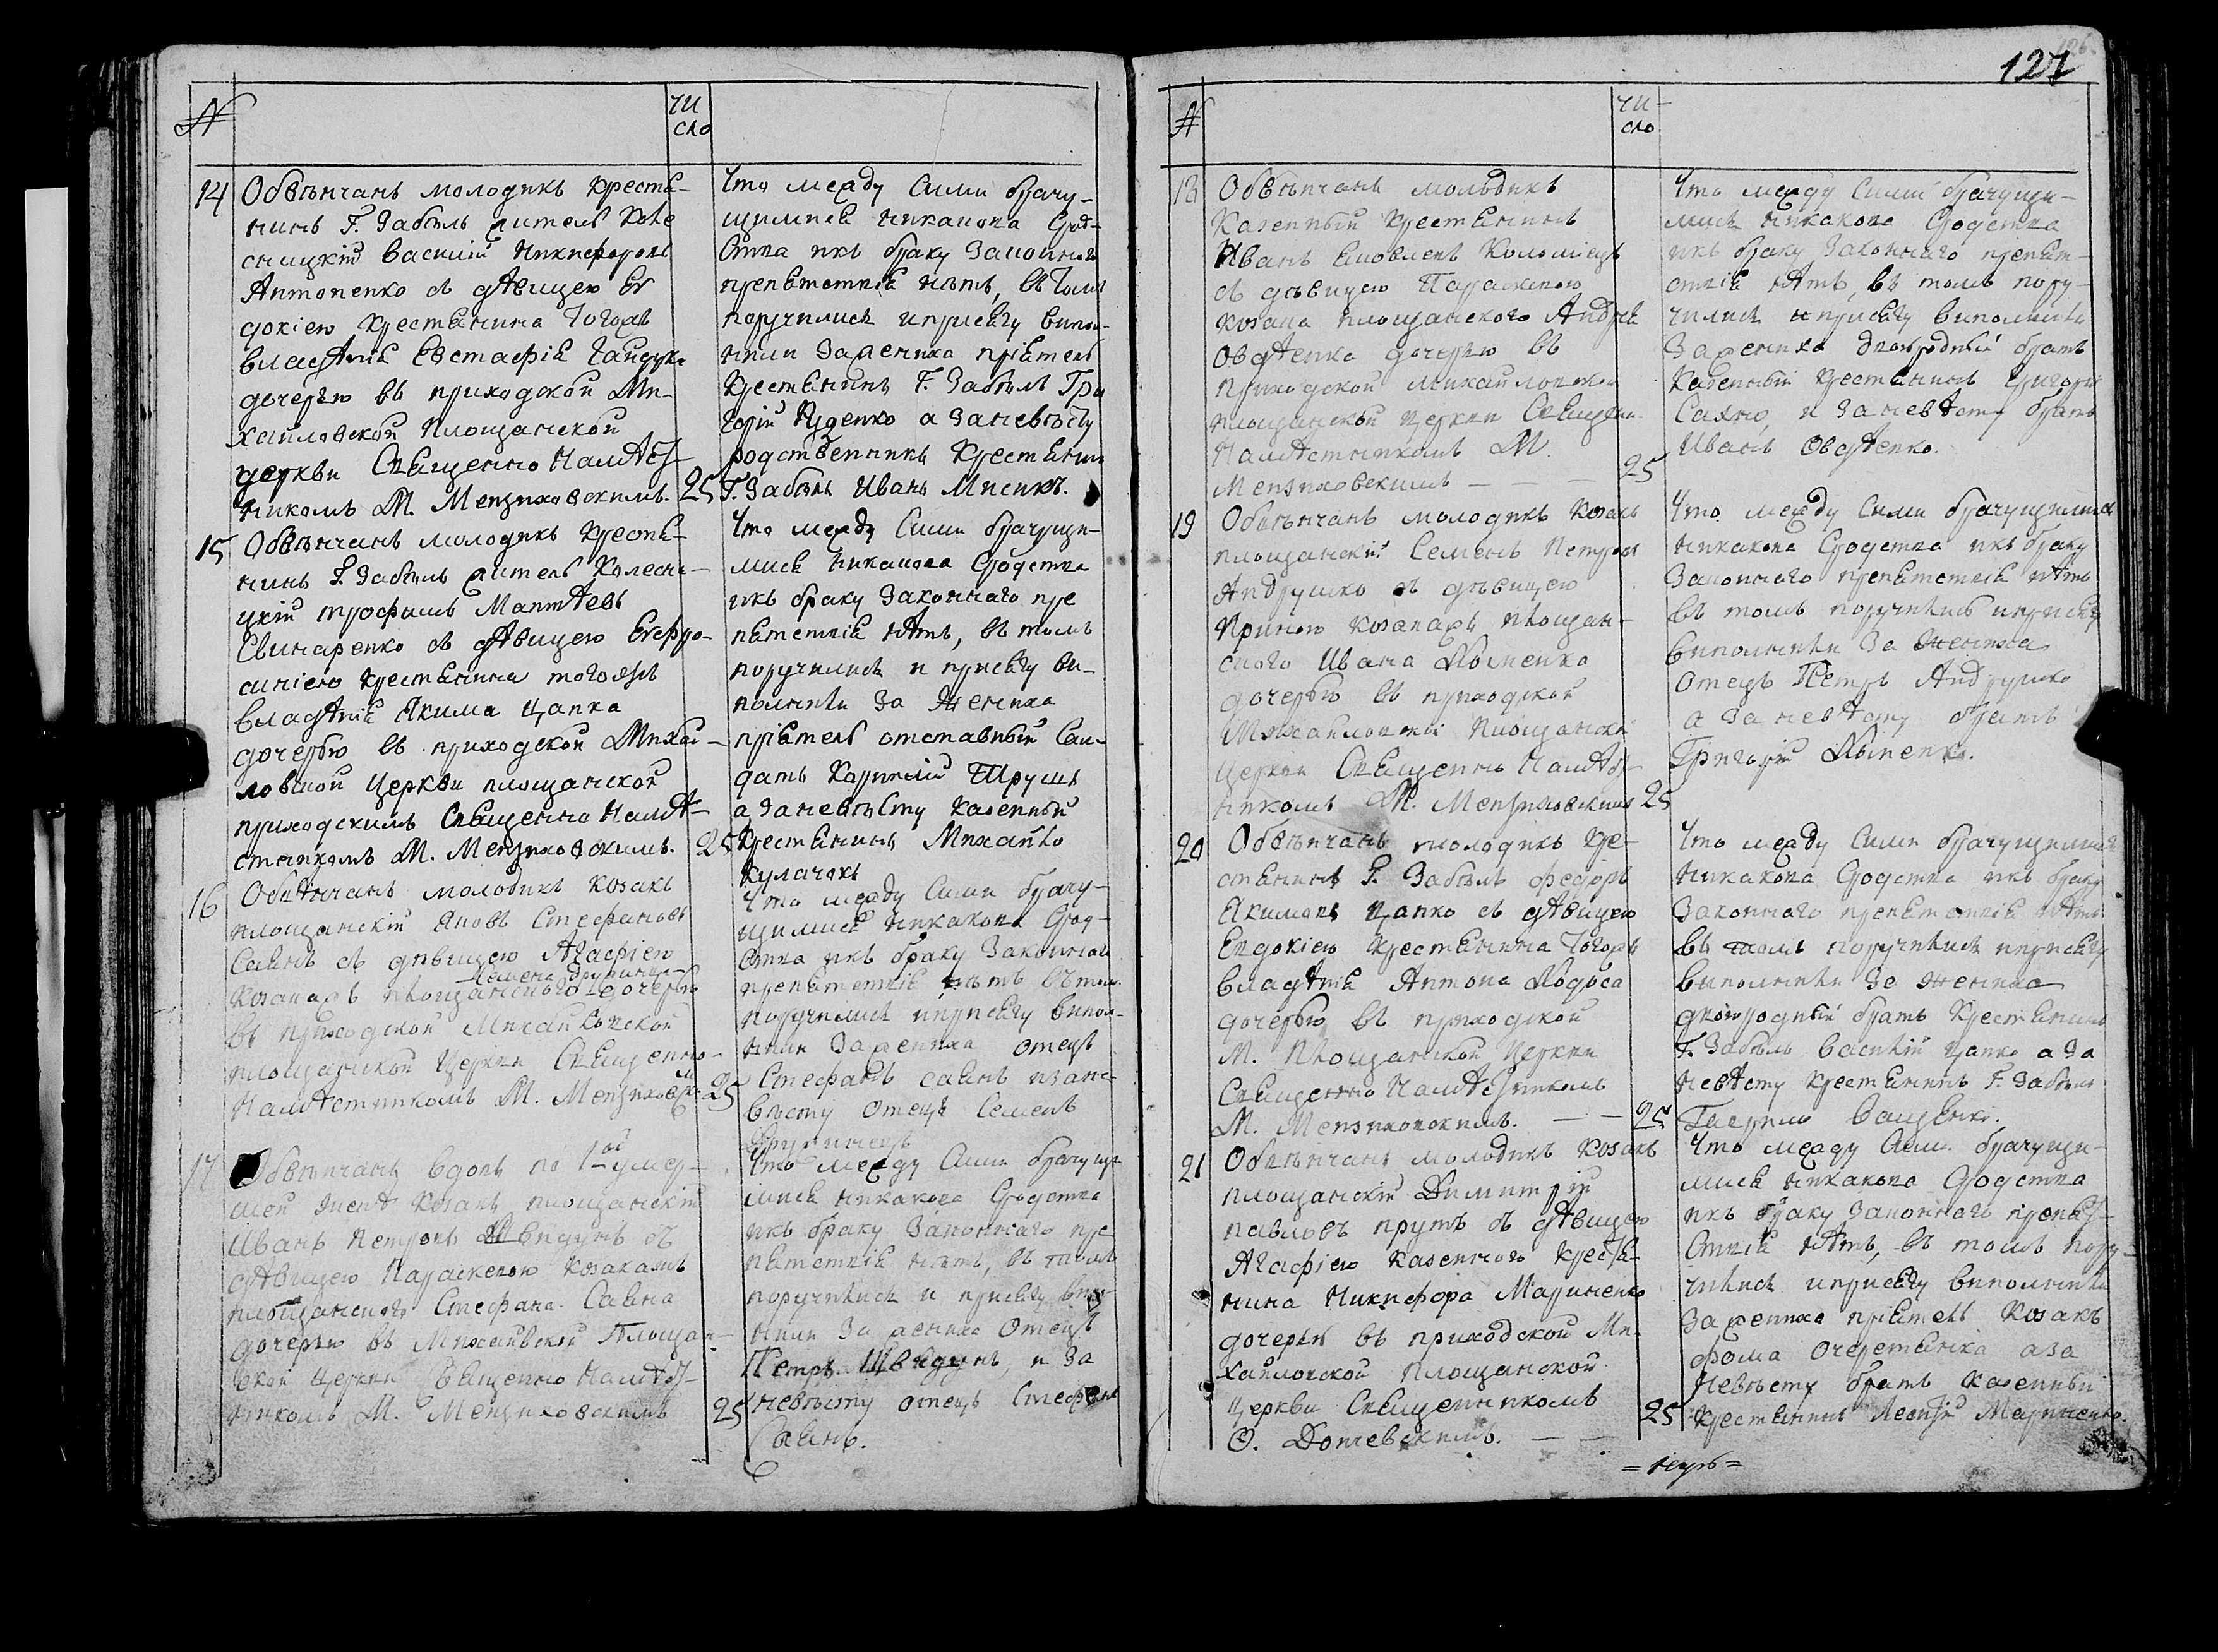 126.
127
N
чи
сло
14
Обвѣнчанъ молодикъ крестя-
нинъ Г. Забѣлъ житель Коле
сницкій Василій Никифоровъ
Антоненко съ дѣвицею Ев
докіею крестянина тогожъ
владѣнія Евстафія Гайдука
дочерью въ приходской Ми-
хайловской Площанской
церкви Священно Намѣст-
никомъ М. Мензиховскимъ. 25
Что между сими брачу-
щимися никакова срод-
ства икъ браку законнаго
препятствія нѣтъ, въ томъ
поручились иприсягу випол-
нили Заженика пріятель
крестянинъ Г. Забѣлъ Гри
горій Руденко а Заневѣсту
родственникъ крестянинъ
Г. Забѣлъ Иванъ Мисикъ.
15
Обвѣнчанъ молодикъ крестя-
нинъ Г. Забѣлъ житель Колесни-
цкій трофимъ Мантѣевъ
Свинаренко съ дѣвицею Евфро-
синіею крестянина тогожъ
владѣнія Якима Цапка
дочерью въ приходской Михай-
ловской церкви площанской
приходскимъ Священно Намѣ-
стникомъ М. Мензиховскимъ. 25
Что между Сими брачущи-
мися никакова сродства
икъ браку Законнаго пре
пятствія нѣтъ, въ томъ
поручились и присягу ви-
полнили За Жениха
пріятель отставный Сол-
датъ Корнилій Трушъ
а Заневѣсту Казенный
крестянинъ Михайло
Кулачокъ
16
Обвѣнчанъ молодикъ козакъ
площанскій Яковъ Стефановъ
Саенъ съ дѣвицею Агафіею
Семена Дружинца
Козакажъ площанского дочерью
въ приходской Михайловской
площанской церкви Священно-
Намѣстникомъ М. Мензиховским 25
Что между Сими брачу-
щимися никакова срод-
ства икъ браку Законнаго
препятствія нѣтъ въ том
поручились иприсягу випол-
нили Заженика отецъ
Стефанъ саенъ изане-
вѣсту отецъ Семенъ
Дружинецъ
17
Обвѣнчанъ вдовъ по 1ой умер-
шей женѣ козакъ площанскій
Иванъ Петровъ Швидунъ съ
дѣвицею Параскевою козакажъ
площанского Стефана Саена
дочерью въ Михайловской Площан-
ской церкви Священно Намѣст-
никомъ М. Мензиховскимъ 25
Что между Сими брачущи
мися никакова Сродства
икъ браку Законнаго пре
пятствія нѣтъ, въ томъ
поручились и присягу випол
нили За жениха Отецъ
Петръ Швидунъ, и За
невѣсту отецъ Стефанъ
Саенъ.
N
чи-
сло
18
Обвѣнчанъ молодикъ
Казенный крестянинъ
Иванъ Яковлевъ Коломіецъ
съ дѣвицею Параскевою
козака площанского Андрея
Овдѣенка дочерью въ
приходской Михайловской
площанской церкви Священно
Намѣстникомъ М.
Мензиховскимъ — — — 25
Что между Сими брачущи-
мись никакова Сродства
икъ браку Законнаго препят-
ствія нѣтъ, въ томъ пору-
чились иприсягу виполнили
Заженика двоюродный братъ
Казенный крестянинъ Григорій
Саенъ, и Заневѣсту братъ
Иванъ Овдѣенко.
19
Обвѣнчанъ молодикъ козакъ
площанскій Семенъ Петровъ
Андрушко съ дѣвицею
Ириною козакажъ площан-
ского Ивана
дочерью въ приходской
Михайловской Площанской
Церкви Священно Намѣст-
никомъ М. Мензиховским 25
Что между Сими брачущимися
никакова Сродства икъ браку
Законнаго препятствія нѣтъ
въ томъ поручились иприсягу
виполнили За жениха
отецъ Петръ Андрушко
а За невѣсту братъ
Григорій
20
Обвѣнчанъ молодикъ кре-
стянинъ Г. Забѣлъ Федоръ
Якимовъ Цапко съ дѣвицею
Евдокіею крестянина тогожъ
владѣнія Антона
дочерью въ приходской
М. Площанской Церкви
Священно Намѣстникомъ
М. Мензиховскимъ. — — 25
Что между Сими брачущимися
никакова Сродства икъ браку
Законнаго препятствія нѣтъ
въ томъ поручились иприсягу
виполнили За жениха
двоюродный братъ крестянинъ
Г. Забѣлъ Василій Цапко а За
невѣсту крестянинъ Г. Забѣлъ
Гаврило Ващенко.
21
Обвѣнчанъ молодикъ козакъ
площанскій Димитрій
павловъ прутъ съ дѣвицею
Агафіею Казенного крестя-
нина Никифора Мариненко
дочерью въ приходской Ми-
хайловской Площанской
Церкви Священникомъ
О. — — 25
Что между Сими брачущи-
мися никакова Сродства
икъ браку Законнаго препят-
ствія нѣтъ, въ томъ пору-
чились иприсягу виполнили
Заженика пріятель Козакъ
фома Очеретянка аза
Невѣсту братъ казенный
крестянинъ Леонтій Мариненко.